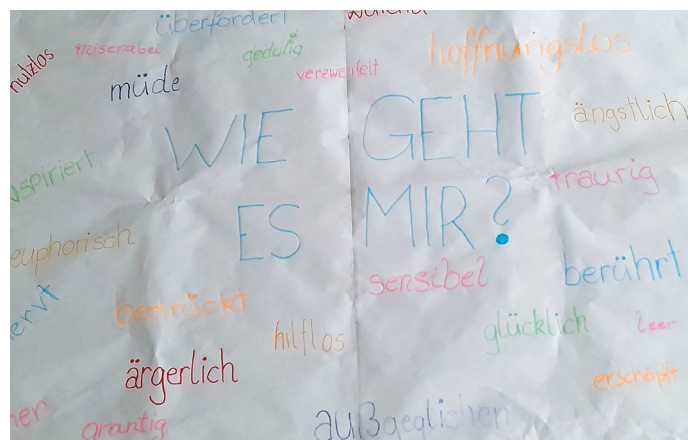 überfordert
nutzlos
miserabel
geduldig
hoffnungslos
verzweifelt
müde
WIE GEHT
ängstlich
spiriert
traurig
ES MIR?
euphorisch
sensibel
berührt
ervt
bedrückt
hilflos
glücklich
leer
ärgerlich
erschöpft
er
grantig
außgeglichen